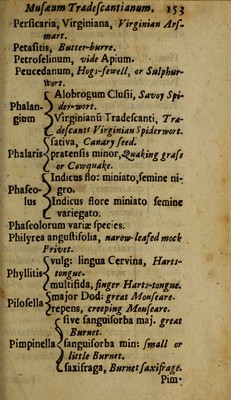 Musæum Tradescantianum. 153
Persicaria, Virginiana, Virginian Ars-
mart.
Petasitis, Butter-burre.
Petroselinum, vide Apium.
Peucedanum, Hogs-fewell, or Sulphur-
wort.
Alobrogum Clusii, Savoy Spi-
Phalan- der-wort.
gium Virginianū Tradescanti, Tra-
descants Virginian Spiderwort.
sativa, Canary seed.
Phalaris pratensis minor, Quaking grass
or Cowquake.
Indicus flo: miniato, semine ni-
Phaseo- gro.
lus Indicus flore miniato semine
variegato.
Phaseolorum variæ species.
Philyrea angustifolia, narow-leafed mock
Privet.
vulg: lingua Cervina, Harts-
Phyllitis tongue.
multifida, finger Harts-tongue.
Pilosella major Dod: great Mouseare.
repens, creeping Mouseare.
sive sanguisorba maj. great
Burnet.
Pimpinella sanguisorba min: small or
little Burnet.
saxifraga, Burnet saxifrage.
Pim-